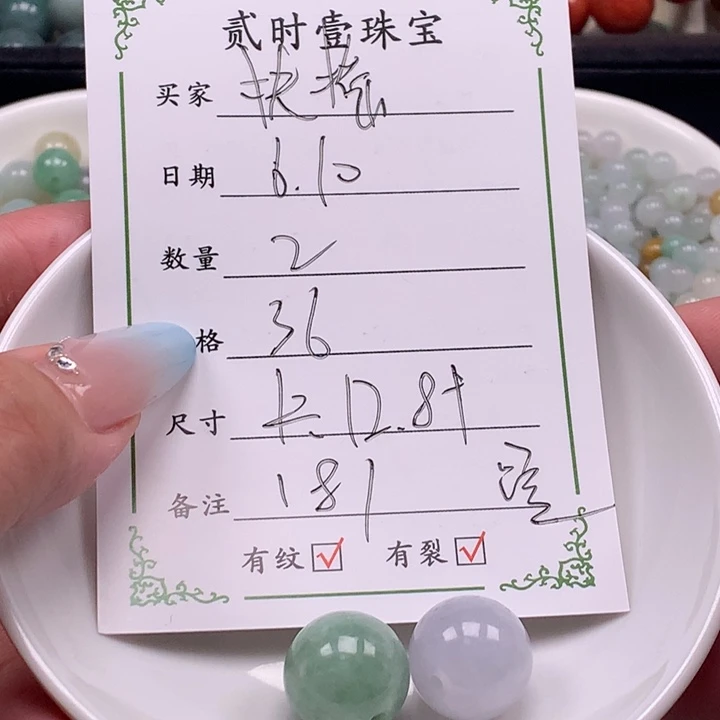 贰时壹珠宝
买家
日期 6.10
数量 2
格 36
尺寸 12.8+
备注 181
有纹 ☑ 有裂 ☑